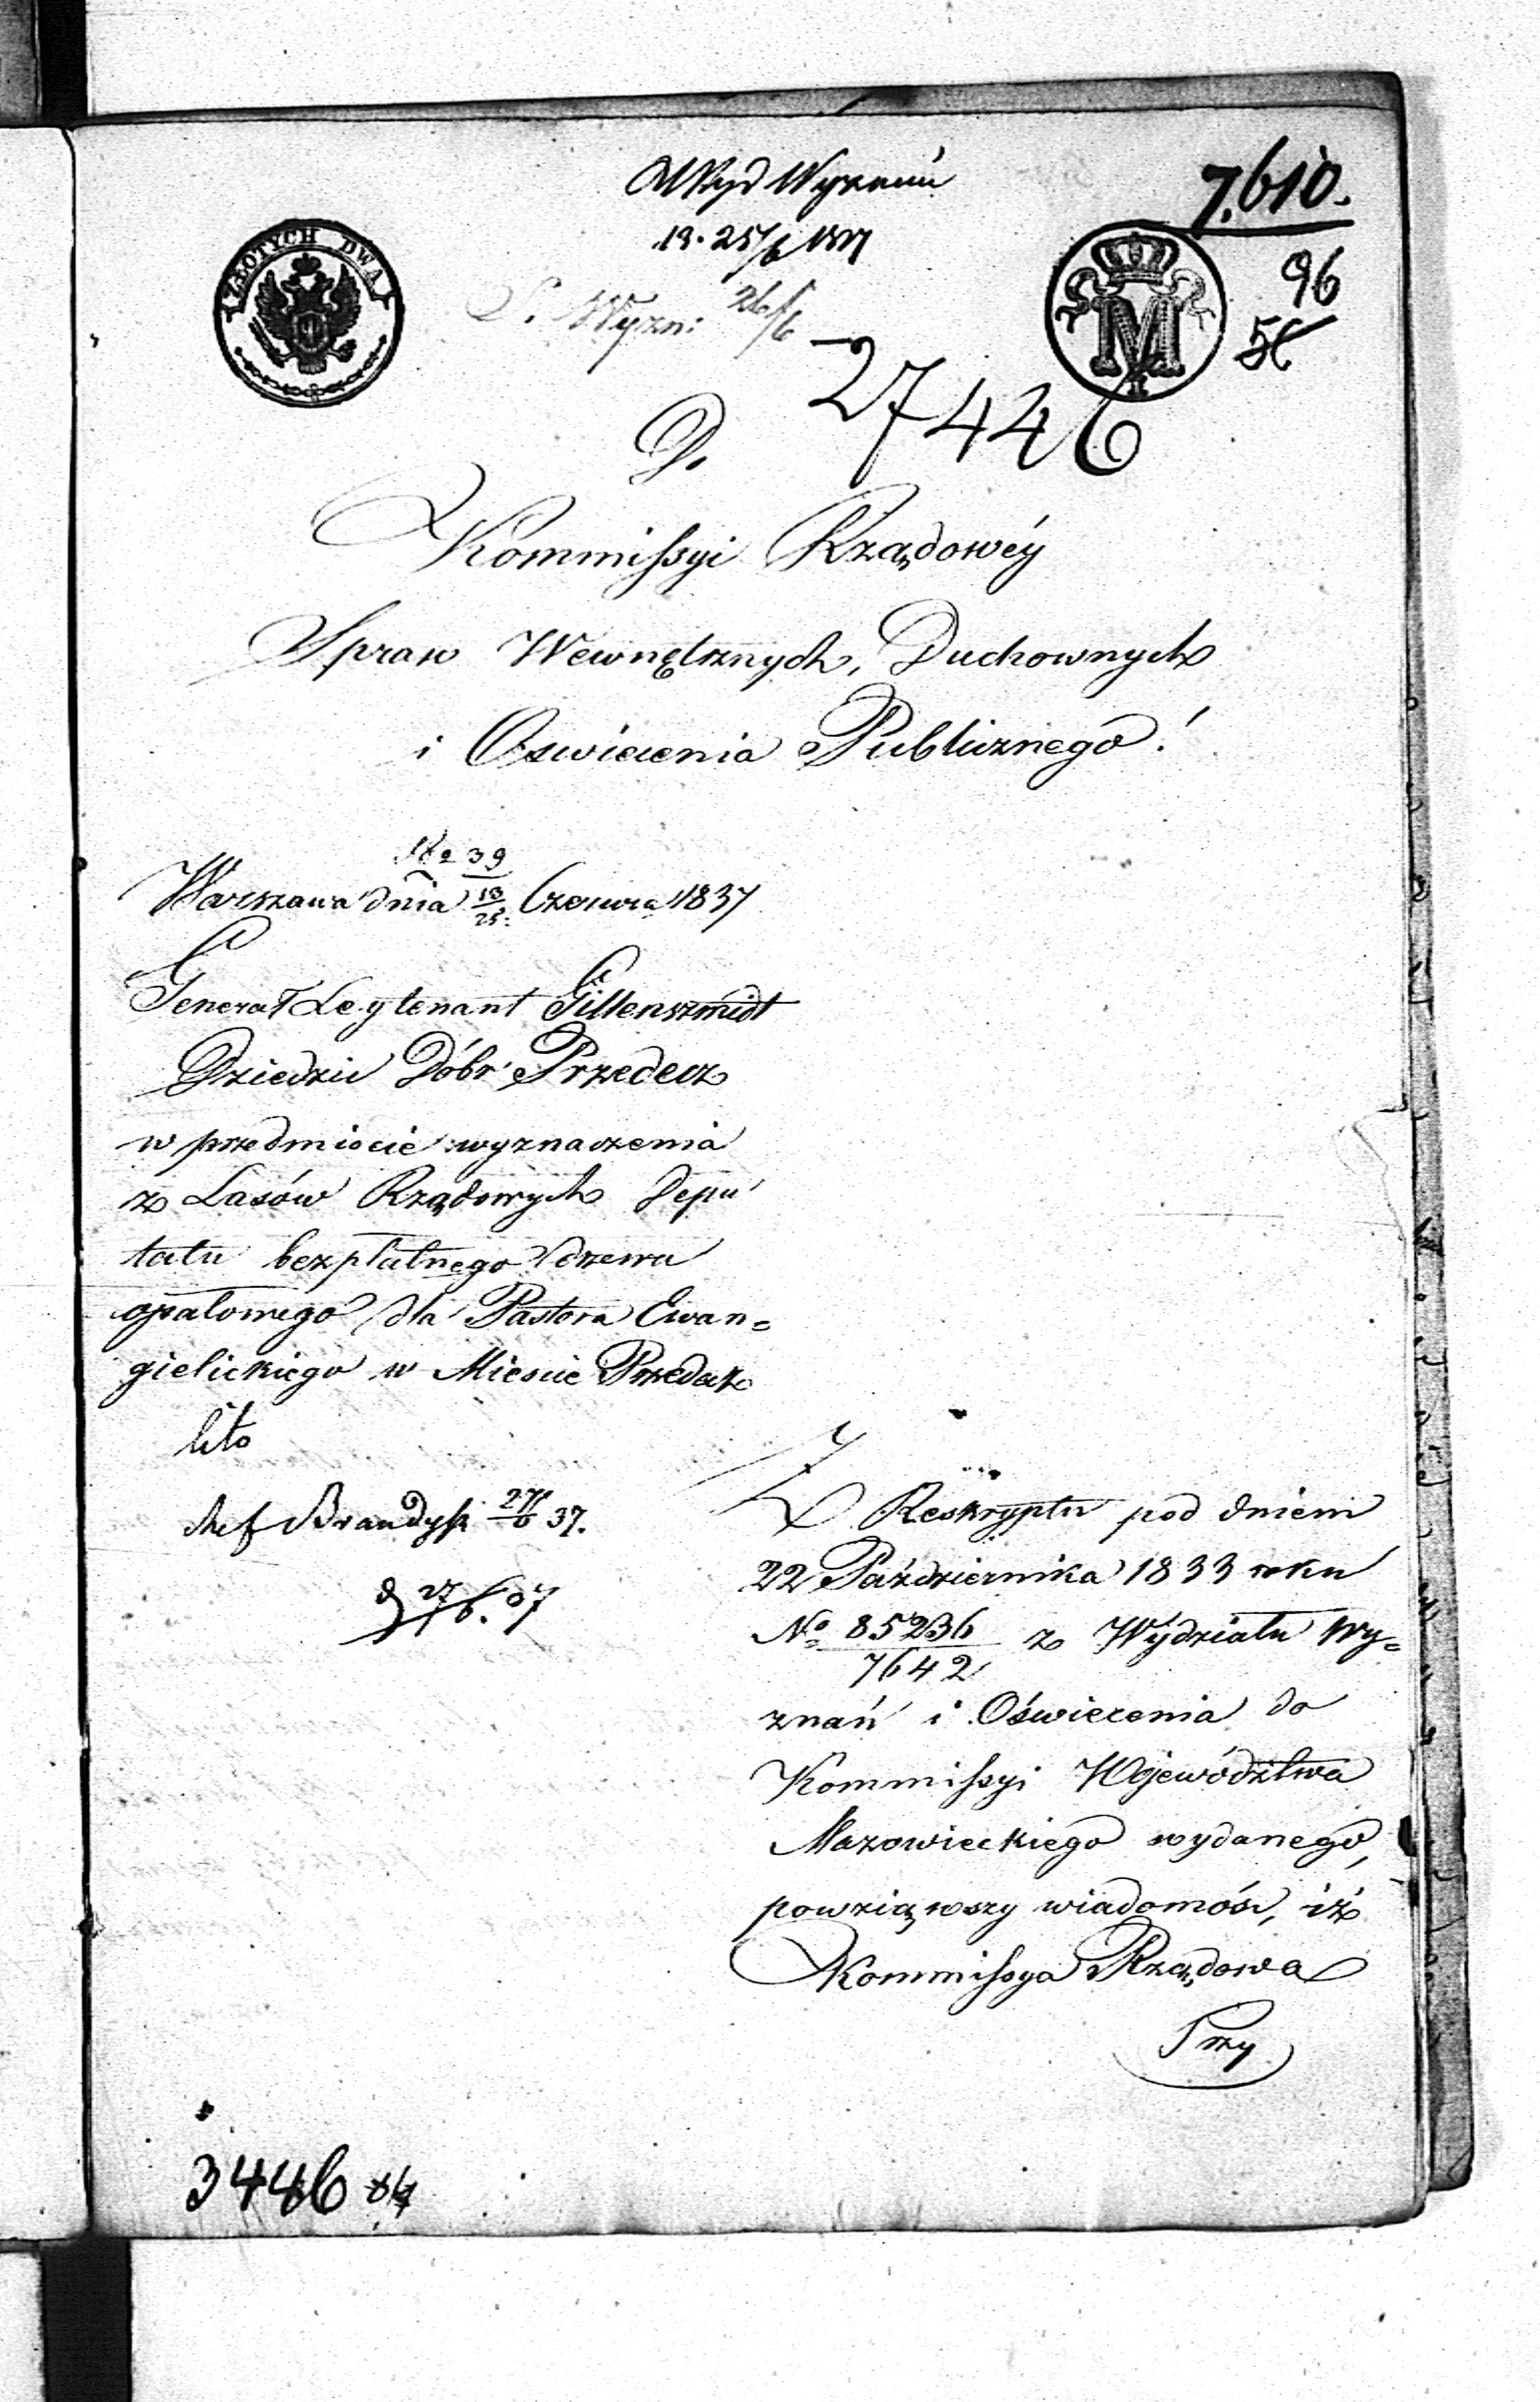 Wyd Wyznań
7.610.
ZŁOTYCH DWA
19. 25/6 1837
96
56
S. Wyzn: 26/6
M
27446
D.
Kommissyi Rządowéy
Spraw Wewnętrznych, Duchownych
i Oswiecenia Publicznego!
No 39
Warszawa dnia 13/25. Czerwca 1837
Generał Leytenant Gillenszmidt
Dziedzic Dóbr Przedecz
w przedmiocie wyznaczenia
z Lasów Rządowych depu
tatu bezpłatnego drzewa
opałowego dla Pastora Ewan=
gielickiego w Miescie Przedecz
lito
Ref Brandys 27/6 37.
27/6. 37
Z Reskryptu pod dniem
22 Października 1833 roku
No 85236/7642 z Wydziału Wy=
znań i Oświecenia do
Kommissyi Województwa
Mazowieckiego wydanego,
powziąwszy wiadomość, iż
Kommissya Rządowa
Przy
3446